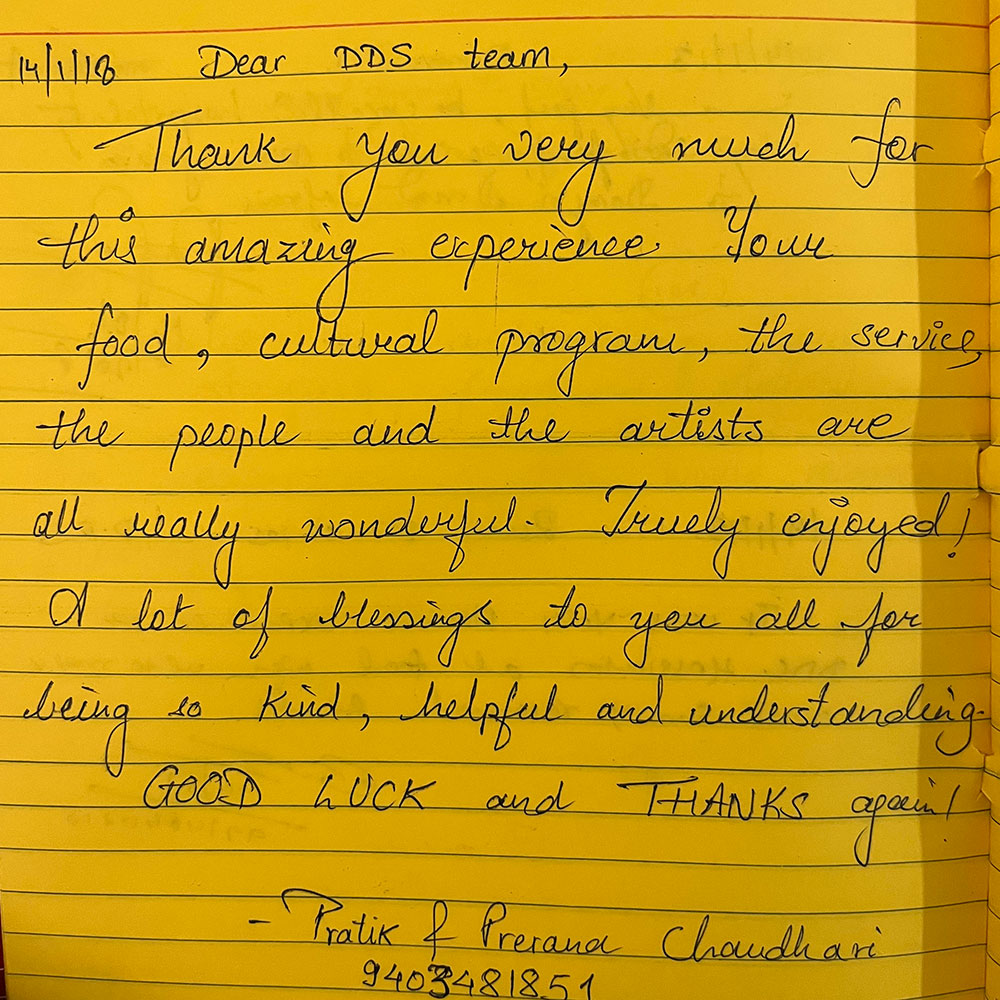 14/1/18 Dear DDS team,
Thank you very much for
this amazing experience. Your
food, cultural program, the service,
the people and the artists are
all really wonderful. Truely enjoyed!
A lot of blessings to you all for
being so kind, helpful and understanding.
GOOD LUCK and THANKS again!
- Pratik & Prerana Chaudhari
9403481851